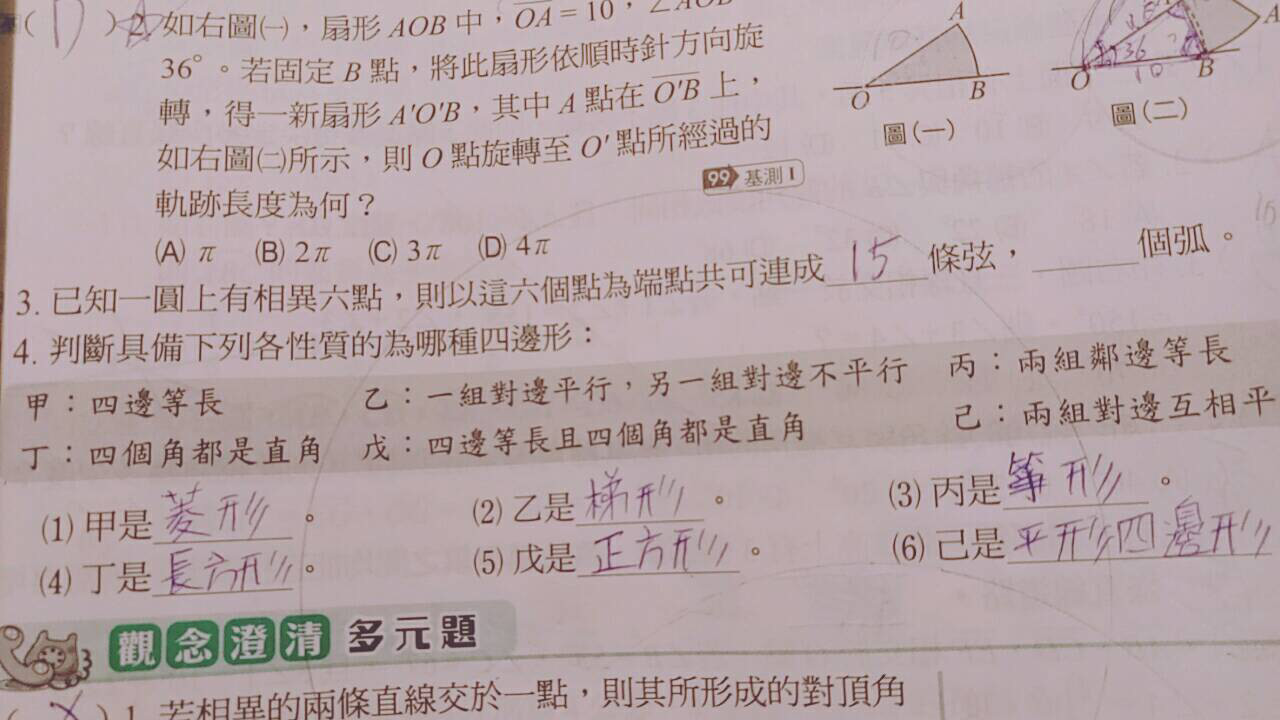 ( D ) 2. 如右圖㈠,扇形 AOB 中,OA = 10,∠AOB
36°。若固定 B 點,將此扇形依順時針方向旋
轉,得一新扇形 A'O'B,其中 A 點在 O'B 上,
如右圖㈡所示,則 O 點旋轉至 O' 點所經過的
軌跡長度為何?
99 基測 I
(A) π (B) 2π (C) 3π (D) 4π
A
O B
圖(一)
36
10
O B
A
圖(二)
3. 已知一圓上有相異六點,則以這六個點為端點共可連成 15 條弦,______個弧。
4. 判斷具備下列各性質的為哪種四邊形:
甲:四邊等長 乙:一組對邊平行,另一組對邊不平行 丙:兩組鄰邊等長
丁:四個角都是直角 戊:四邊等長且四個角都是直角 己:兩組對邊互相平
(1) 甲是菱形。 (2) 乙是梯形。 (3) 丙是箏形。
(4) 丁是長方形。 (5) 戊是正方形。 (6) 己是平形四邊形
觀念澄清 多元題
( X ) 1. 若相異的兩條直線交於一點,則其所形成的對頂角